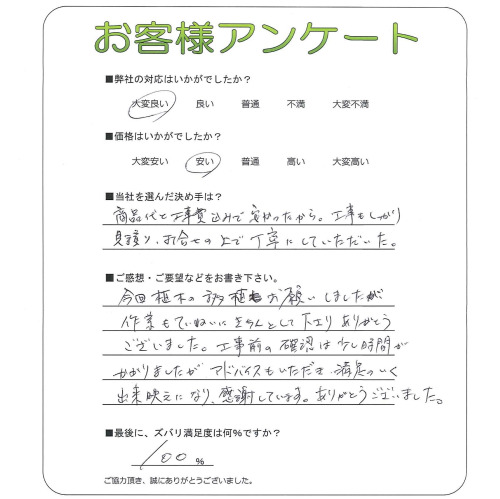 お客様アンケート
■弊社の対応はいかがでしたか？
大変良い 良い 普通 不満 大変不満
■価格はいかがでしたか？
大変安い 安い 普通 高い 大変高い
■当社を選んだ決め手は？
商品代と工事費込みで安かったから。工事もしっかり
見積り、お合せの上で丁寧にしていただいた。
■ご感想・ご要望などをお書き下さい。
今回植木の植もお願いしましたが
作業もていねいにきちんとして下さりありがとう
ございました。工事前の確認は少し時間が
かかりましたがアドバイスもいただき満足のいく
出来映えになり、感謝しています。ありがとうございました。
■最後に、ズバリ満足度は何％ですか？
100 ％
ご協力頂き、誠にありがとうございました。